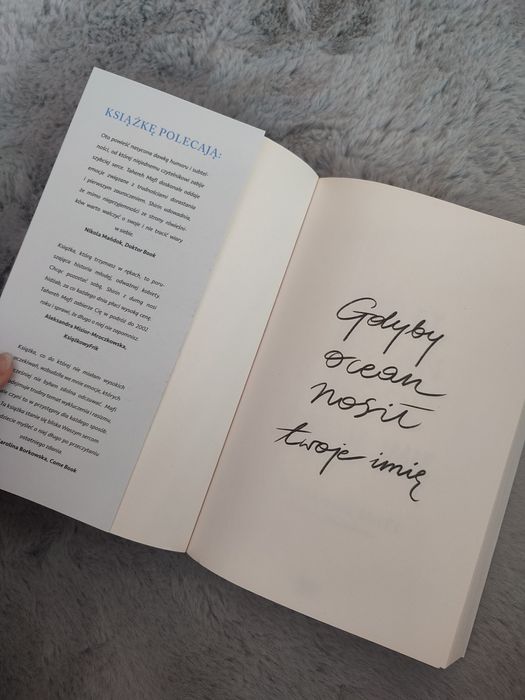 KSIĄŻKĘ POLECAJĄ:
Oto powieść nasycona dawką humoru i subtel-
ności, od której niejednemu czytelnikowi zabije
szybciej serce. Tahereh Mafi doskonale oddaje
emocje związane z trudnościami dorastania
i pierwszym zauroczeniem. Shirin udowadnia,
że mimo nieprzyjemności ze strony rówieśni-
ków warto walczyć o swoje i nie tracić wiary
w siebie.
Nikola Mańdok, Doktor Book
Książka, którą trzymasz w rękach, to poru-
szająca historia młodej, odważnej kobiety.
Chcąc pozostać sobą, Shirin z dumą nosi
hidżab, za co każdego dnia płaci wysoką cenę.
Tahereh Mafi zabierze Cię w podróż do 2002
roku i sprawi, że długo o niej nie zapomnisz.
Aleksandra Misior-Mroczkowska,
Książkowyfrik
Książka, co do której nie miałam wysokich
oczekiwań, wzbudziła we mnie emocje, których
wcześniej nie byłam zdolna odczuwać. Mafi
podejmuje trudny temat wykluczenia i rasizmu,
czyni to w przystępny dla każdego sposób.
Ta książka stanie się bliska Waszym sercom
będziecie myśleć o niej długo po przeczytaniu
ostatniego zdania.
Karolina Borkowska, Come Book
Gdyby
ocean
nosił
twoje imię